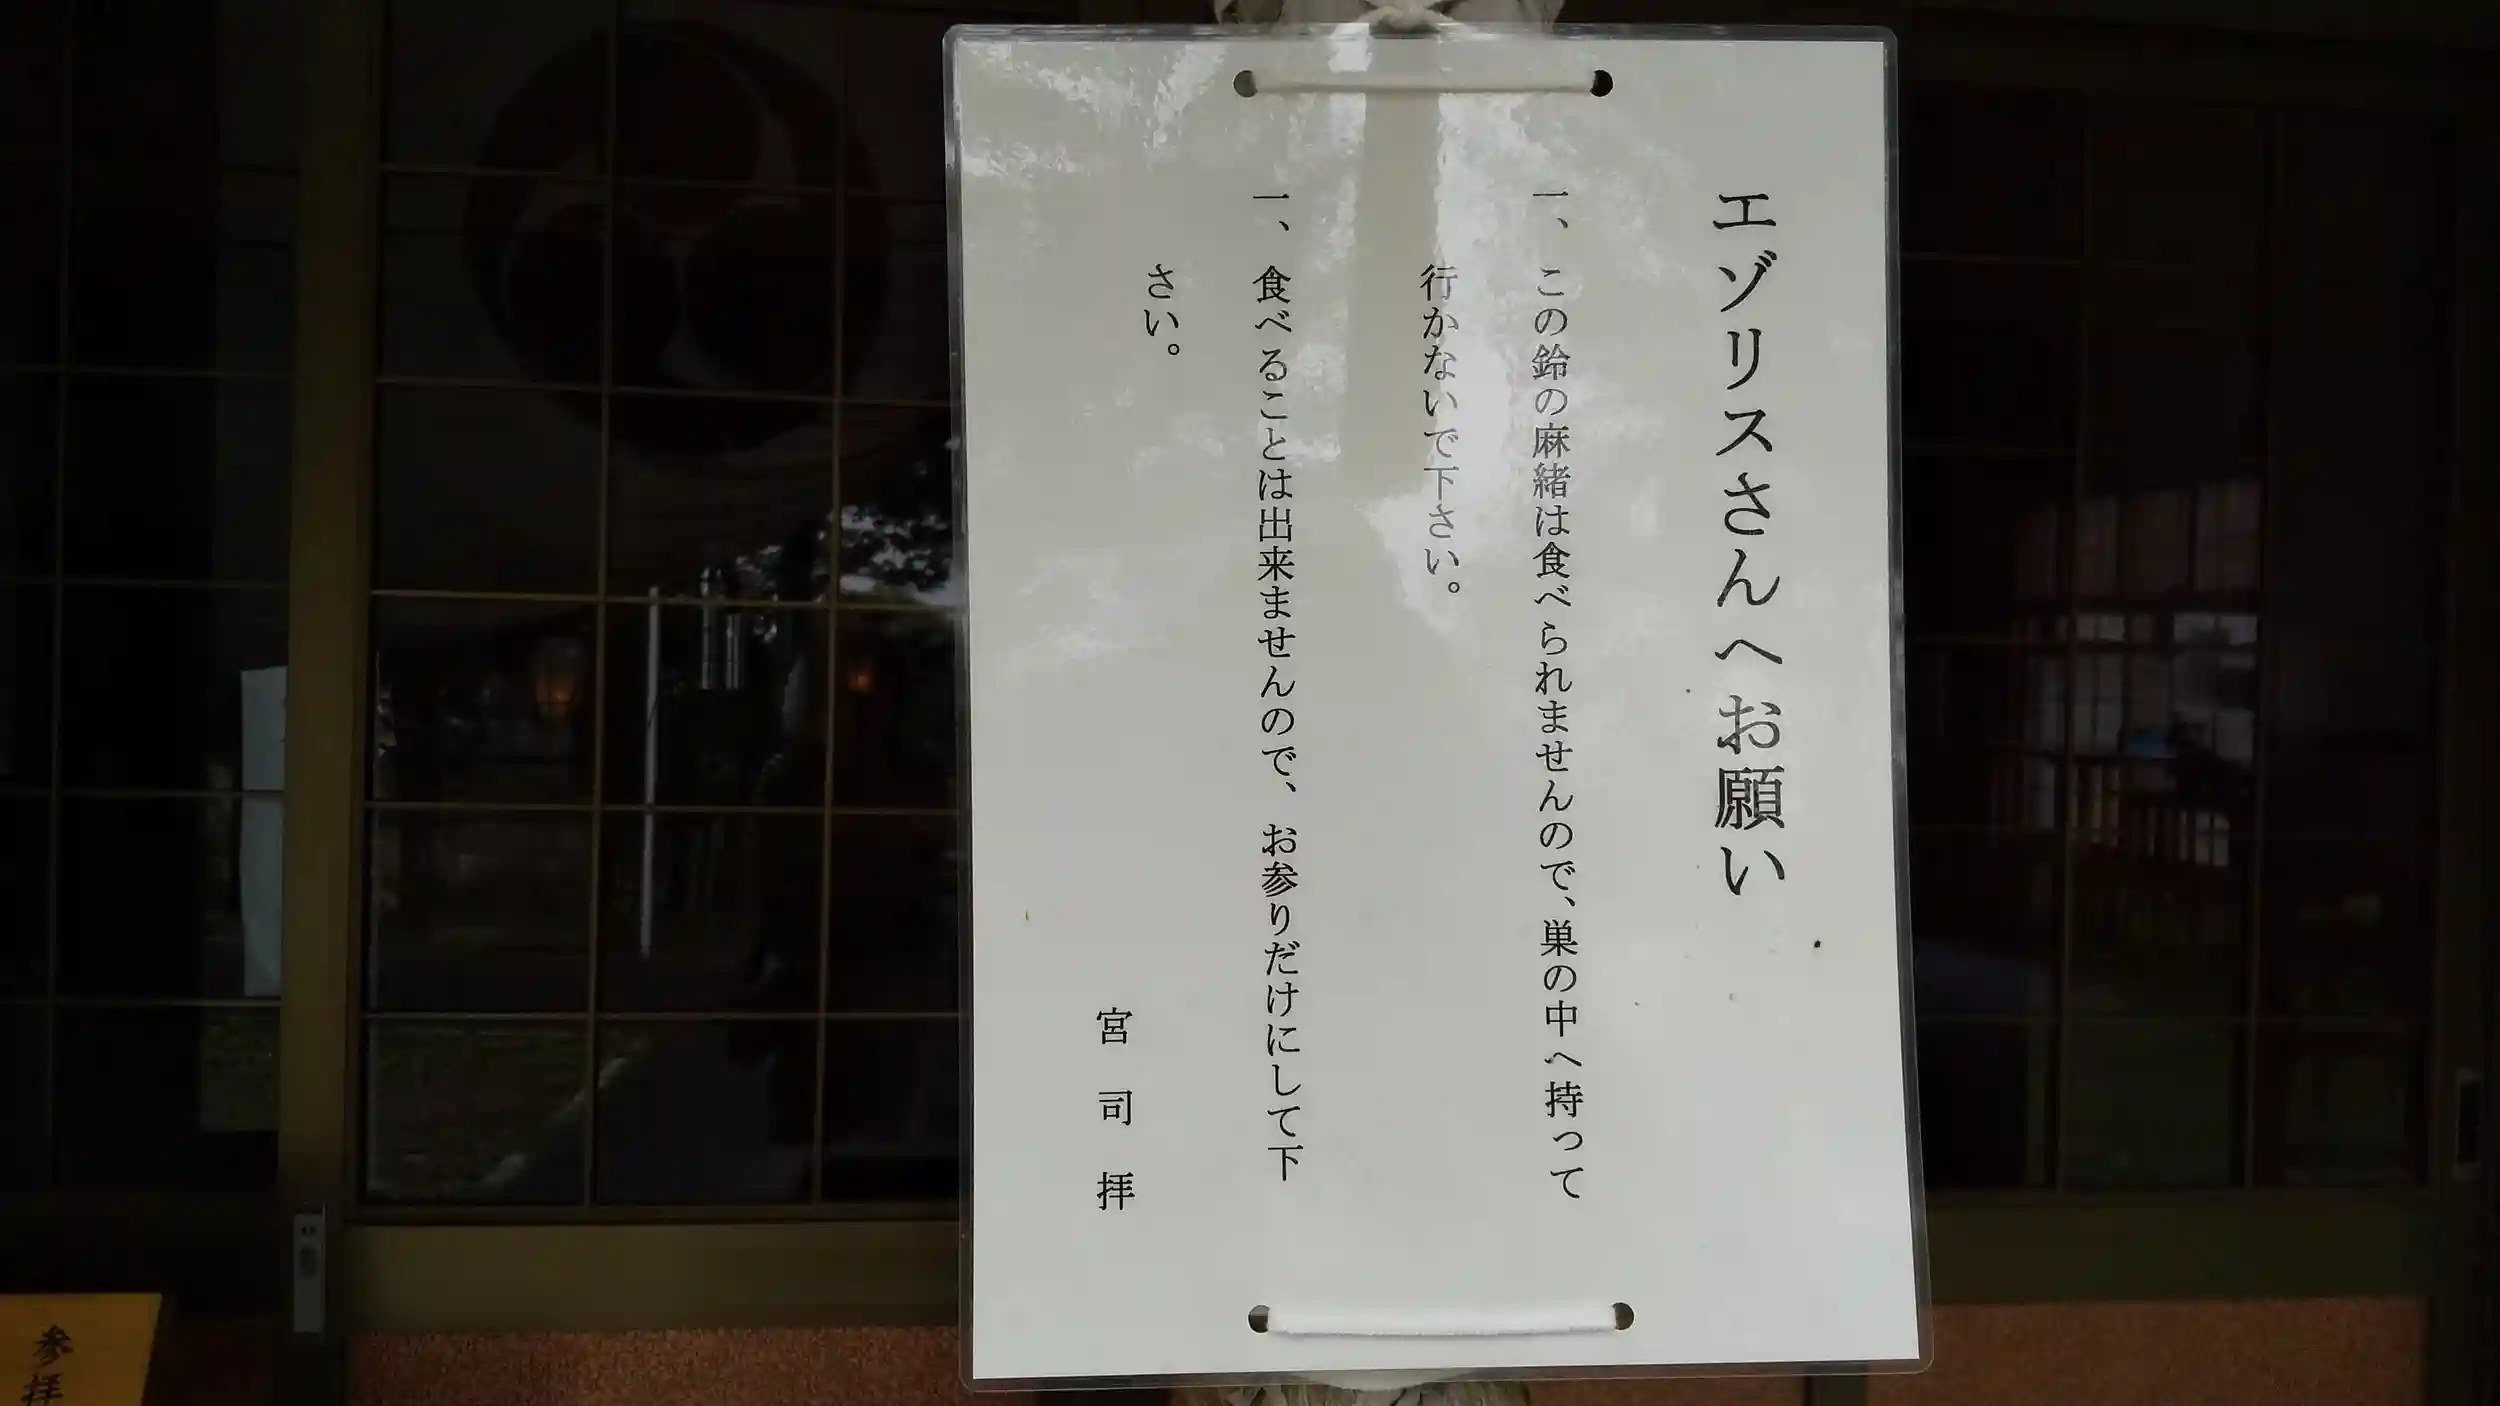 エゾリスさんへお願い
一、この鈴の麻緒は食べられませんので、巣の中へ持って
行かないで下さい。
一、食べることは出来ませんので、お参りだけにして下
さい。
宮司 拝
参拝